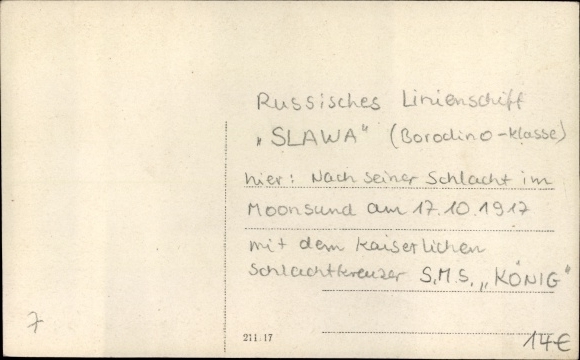 Russisches Linienschiff
„SLAWA" (Borodino-Klasse)
hier: Nach seiner Schlacht im
Moonsund am 17.10.1917
mit dem Kaiserlichen
Schlachtkreuzer S.M.S. „KÖNIG"
7
211.17
14€